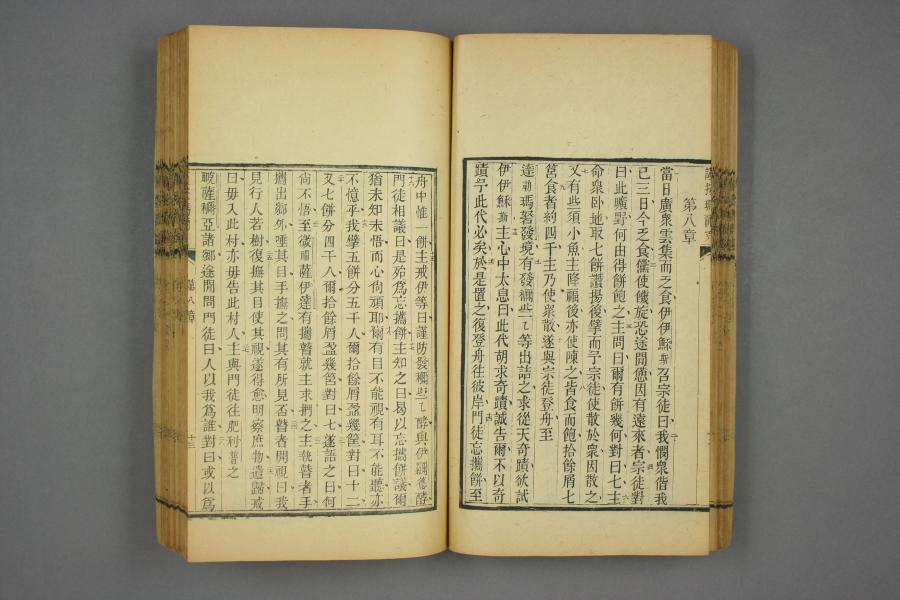 第八章
當日廣衆雲集而乏食伊伊穌斯召宗徒曰我憫衆偕我
已三日今乏食儻使饑旋恐途閒憊因有遠來者宗徒對
曰此曠野何由得餅飽之主問曰爾有餅幾何對曰七主
命衆卧地取七餅讚揚後擘而予宗徒使散於衆因散之
又有些須小魚主降福後亦使陳之皆食而飽拾餘屑七
筥食者約四千主乃使衆散遂與宗徒登舟至
達勒瑪努發境有發爾些乙等出詰之求從天奇蹟欲試
伊伊穌斯主心中太息曰此代胡求奇蹟誠告爾不以奇
蹟予此代必矣於是置之復登舟往彼岸門徒忘攜餅至
舟中惟一餅主戒伊等曰謹防發爾些乙酵與伊羅德酵
門徒相議曰是殆爲忘攜餅主知之曰曷以忘攜餅議爾
猶未知未悟而心尙頑耶爾有目不能視有耳不能聽亦
不憶乎我擘五餅分五千人爾拾餘屑盈幾筐對曰十二
又七餅分四千人爾拾餘屑盈幾筥對曰七遂語之曰何
尙不悟至微薩伊達有攜瞽就主求捫之主執瞽者手
攜出鄉外唾其目手撫之問其有所見否瞽者開視曰我
見行人若樹復撫其目使其視遂得愈明察庶物遣歸戒
曰毋入此村亦毋告此村人主與門徒往肥利普之
凱薩穪亞諸鄉途閒問門徒曰人以我爲誰對曰或以爲
第八章
十三